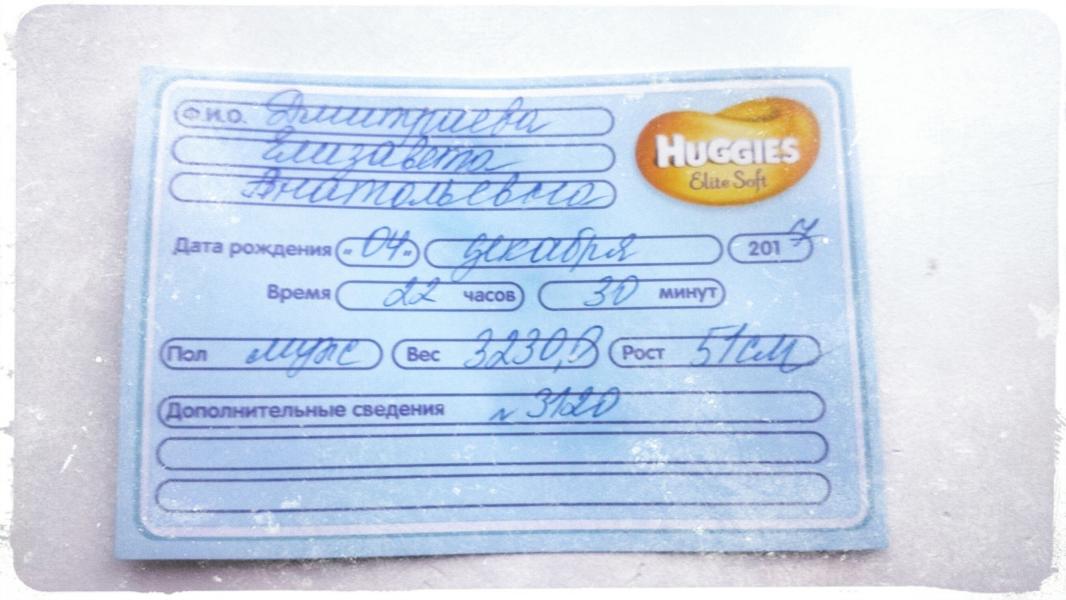 Ф.И.О. Дмитриева
HUGGIES
Елизавета
Elite Soft
Анатольевна
Дата рождения "04" декабря 2017
Время 22 часов 30 минут
Пол муж Вес 3230,0 Рост 51см
Дополнительные сведения N 3120